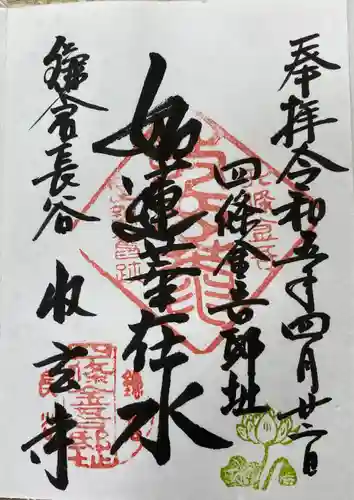 奉拝 令和五年四月廿一日
四條金吾邸址
如蓮華在水
鎌倉長谷 収玄寺